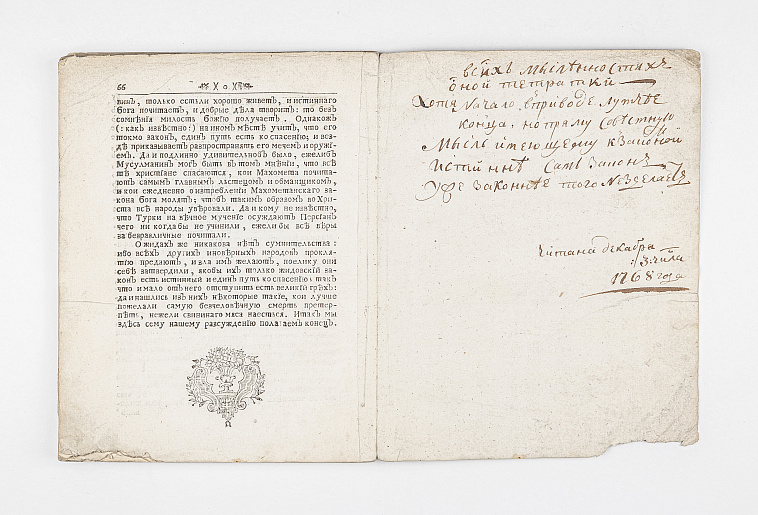 66
винъ, только естьли хорошо живетъ, и истиннаго
бога почитаетъ, и добрые дѣла творитъ: то безъ
сомнѣнія милость божїю получаетъ. Однакожъ
(: какъ извѣстно :) на иномъ мѣстѣ учитъ, что его
токмо законъ, единъ путь есть ко спасенїю; и вез-
дѣ приказываетъ распространять его мечемъ и оружї-
емъ. Да и подлинно удивительнобъ было, ежелибъ
Мусулманинъ могъ быть въ томъ мнѣнїи, что всѣ
тѣ христїане спасаются, кои Махомета почита-
ютъ самымъ главнымъ льстецомъ и обманщикомъ,
и кои ежедневно о изтребленїи Махометанскаго за-
кона бога молятъ; чтобъ такимъ образомъ во Хри-
ста всѣ народы увѣровали. Да и кому не извѣстно,
что Турки на вѣчное мученїе осуждаютъ Персїанъ
чего ни когда бы не учинили, ежели бы всѣ вѣры
за безразличные почитали.
О жидахъ же никакова нѣтъ сумнительства:
ибо всѣхъ другихъ иновѣрныхъ народовъ прокля-
тїю предаютъ, и зла имъ желаютъ, поелику они
себѣ затвердили, якобы ихъ только жидовскїй за-
конъ есть истинный и единъ путь ко спасенїю: такъ
что и мало отъ него отступить есть великїй грѣхъ:
да и нашлись изъ нихъ нѣкоторые такїе, кои лучше
пожелали самую безчеловѣчную смерть претер-
пѣть, нежели свинаго мяса наесться. Итакъ мы
здѣсь сему нашему разсужденїю полагаемъ конецъ.
всѣхъ
оной тетратки
Хотя начало
конца, но прямо совѣстную
Мысль имеющему к законой
Истинне Самъ законъ
законнѣе того
Читана декабря
3 числа
1768 года